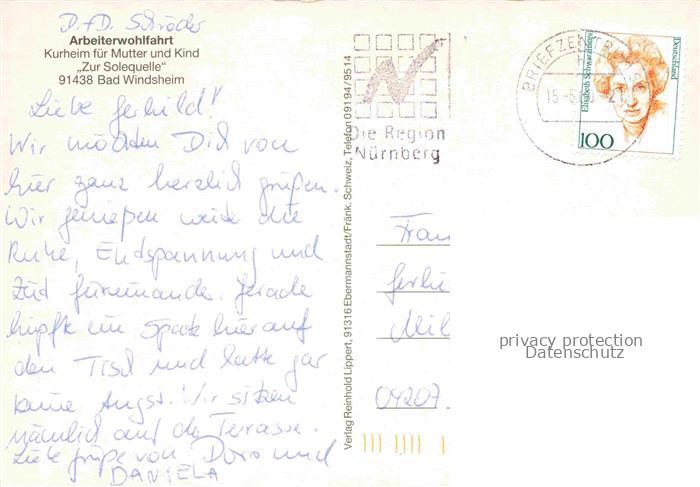 D.+D. Schröder
Arbeiterwohlfahrt
Kurheim für Mutter und Kind
„Zur Solequelle“
91438 Bad Windsheim
Liebe Gerhild!
Wir möchten Dich von
hier ganz herzlich grüßen.
Wir genießen weite die
Ruhe, Entspannung und
Zeit füreinander. Gerade
hüpfte ein Spatz hier auf
den Tisch und hatte gar
keine Angst. Wir sitzen
nämlich auf der Terrasse.
Liebe Grüße von Doro und
DANIELA
Verlag Reinhold Lippert, 91316 Ebermannstadt/Fränk. Schweiz, Telefon 09194/9514
Die Region
Nürnberg
BRIEFZENTRUM
Elisabeth Schwarzhaupt
Deutschland
100
Frau
Gerhi
Mil
04207
privacy protection
Datenschutz